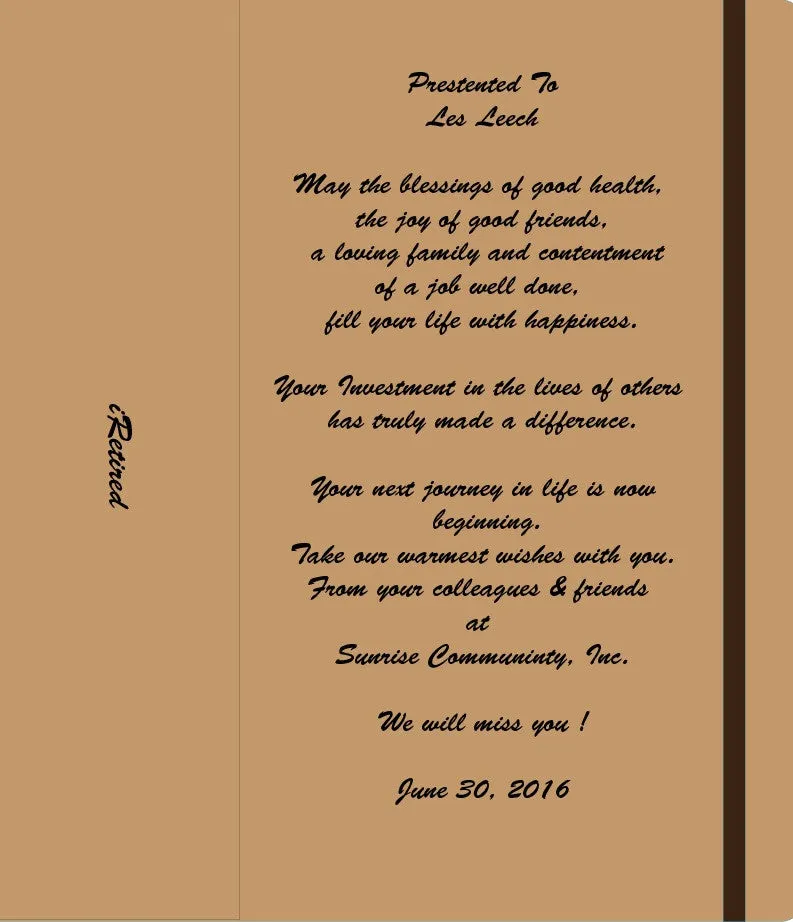 iRetired
Prestented To
Les Leech
May the blessings of good health,
the joy of good friends,
a loving family and contentment
of a job well done,
fill your life with happiness.
Your Investment in the lives of others
has truly made a difference.
Your next journey in life is now
beginning.
Take our warmest wishes with you.
From your colleagues & friends
at
Sunrise Communinty, Inc.
We will miss you !
June 30, 2016